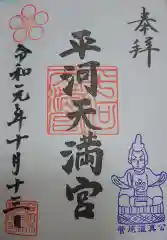 奉拝
平河天満宮
令和元年十月十三日
菅原道真公